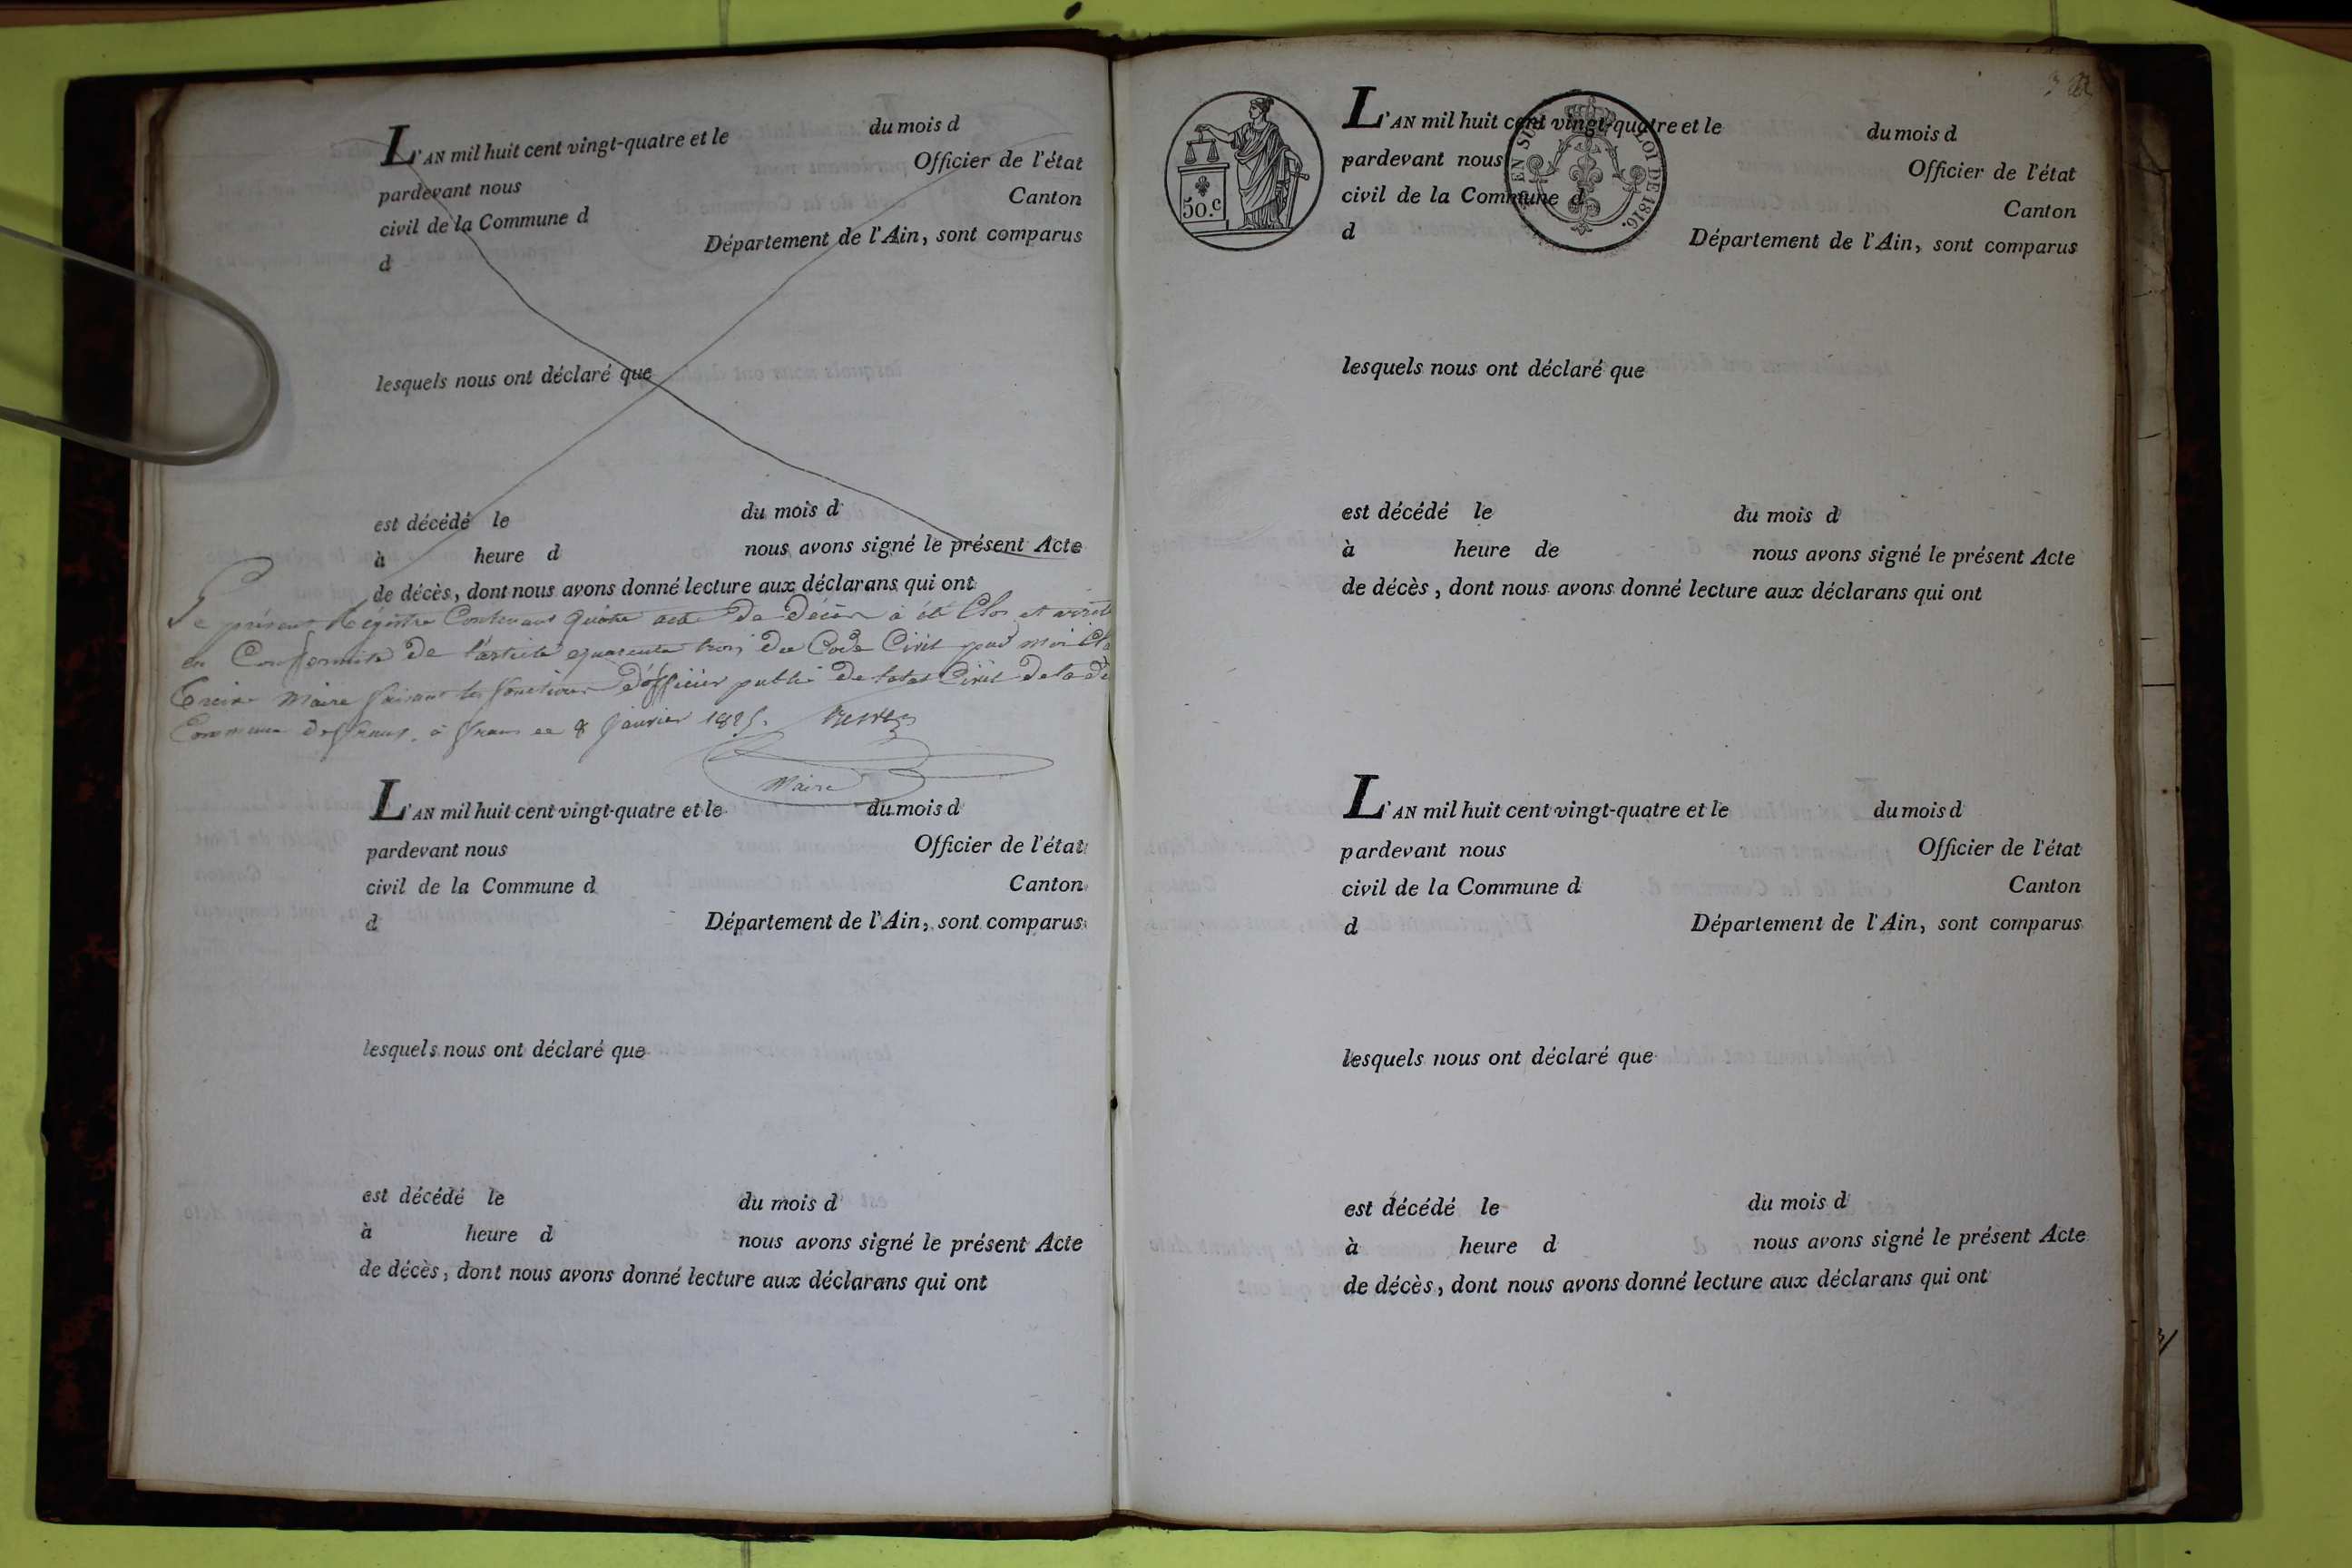 L'AN mil huit cent vingt-quatre et le du mois d
pardevant nous Officier de l'état
civil de la Commune d Canton
d Département de l'Ain, sont comparus
lesquels nous ont déclaré que
est décédé le du mois d
à heure d nous avons signé le présent Acte
de décès, dont nous avons donné lecture aux déclarans qui ont
Le présent Régistre Contenant quatre acte De Décès à été Clos et
en Conformité De l'article quarente trois Du Code Civil par moi
Maire faisant les fonctions D'officier public De l'état Civil De la
Commune à ce 8 Janvier 1825.
Maire
L'AN mil huit cent vingt-quatre et le du mois d
pardevant nous Officier de l'état
civil de la Commune d Canton
d Département de l'Ain, sont comparus
lesquels nous ont déclaré que
est décédé le du mois d
à heure d nous avons signé le présent Acte
de décès, dont nous avons donné lecture aux déclarans qui ont
50.c
EN SUS LOI DE 1816.
L'AN mil huit cent vingt-quatre et le du mois d
pardevant nous Officier de l'état
civil de la Commune d Canton
d Département de l'Ain, sont comparus
lesquels nous ont déclaré que
est décédé le du mois d
à heure de nous avons signé le présent Acte
de décès, dont nous avons donné lecture aux déclarans qui ont
L'AN mil huit cent vingt-quatre et le du mois d
pardevant nous Officier de l'état
civil de la Commune d Canton
d Département de l'Ain, sont comparus
lesquels nous ont déclaré que
est décédé le du mois d
à heure d nous avons signé le présent Acte
de décès, dont nous avons donné lecture aux déclarans qui ont